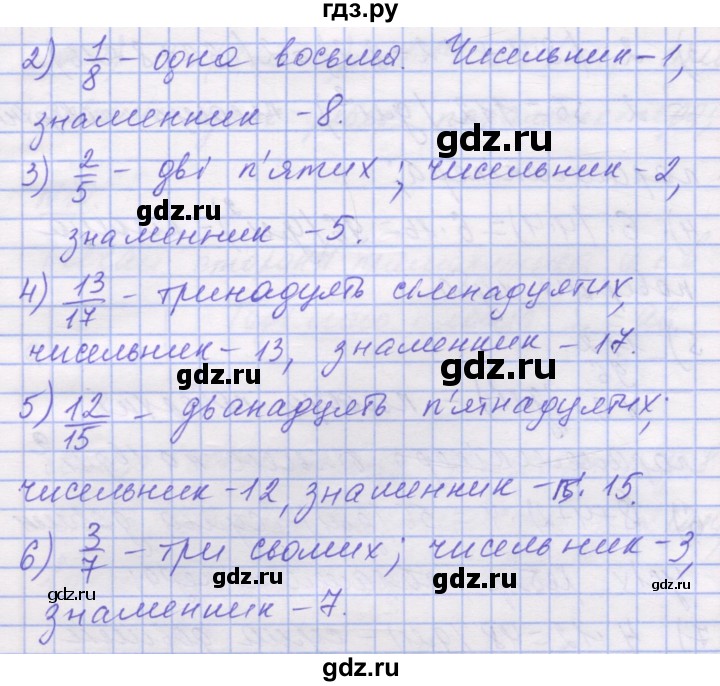 гдз.ру
2) 1/8 – одна восьма. Чисельник – 1,
знаменник – 8.
gdz.ru
3) 2/5 – дві п'ятих; чисельник – 2,
gdz.ru
знаменник – 5.
4) 13/17 – тринадцять сімнадцятих,
чисельник – 13, знаменник – 17.
gdz.ru
gdz.ru
5) 12/15 – дванадцять п'ятнадцятих;
чисельник – 12, знаменник – 15.
6) 3/7 – три сьомих; чисельник – 3,
gdz.ru
gdz.ru
gdz.ru
gdz.ru
знаменник – 7.
gdz.ru